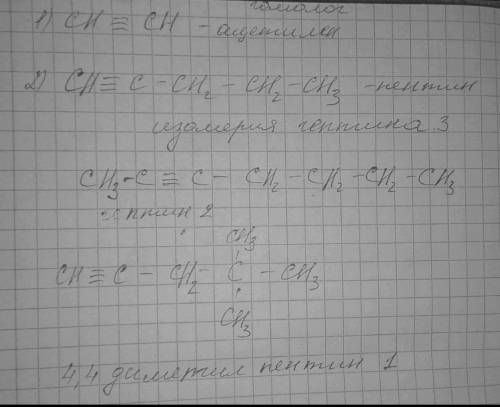 гомолог
1) CH ≡ CH - ацетилен
2) CH ≡ C - CH₂ - CH₂ - CH₃ - пентин
изомерия гептина 3
CH₃ - C ≡ C - CH₂ - CH₂ - CH₂ - CH₃
птин 2
CH₃
CH ≡ C - CH₂ - C - CH₃
CH₃
4,4 диметил пентин 1